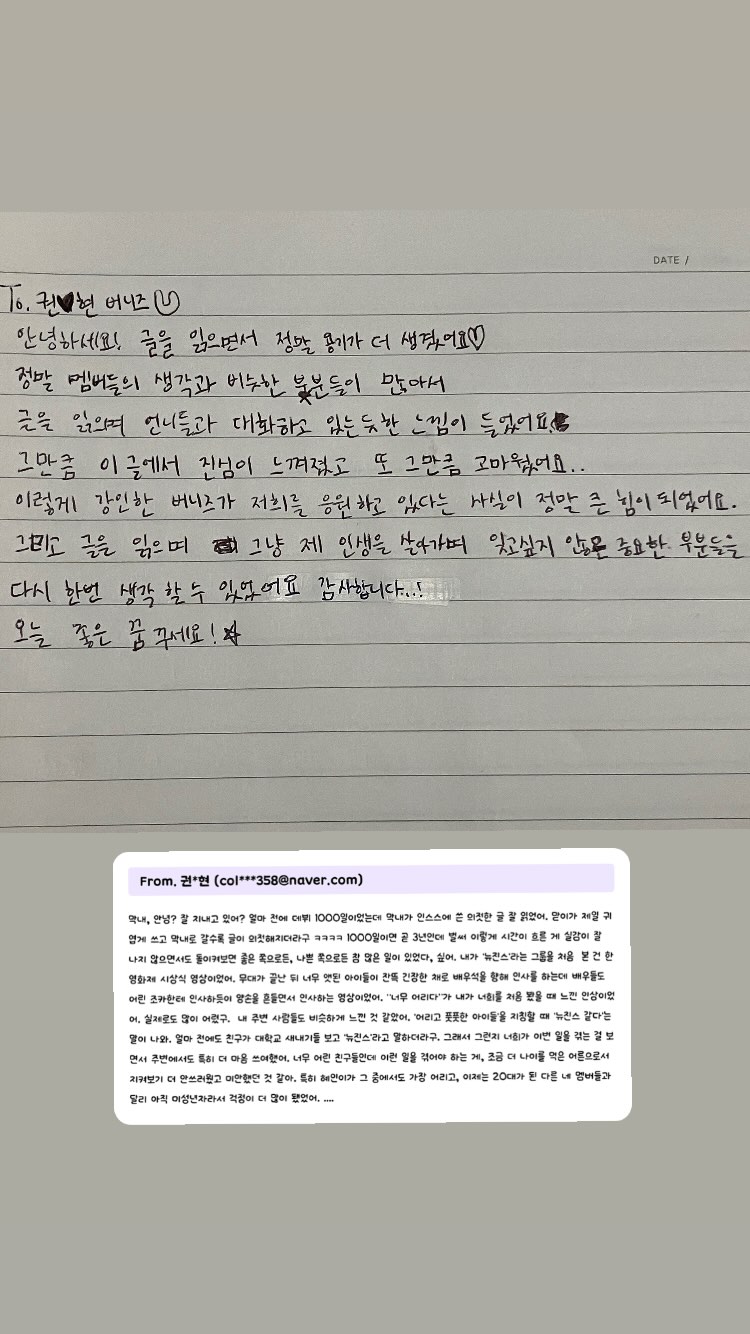 DATE /
To. 권♥현 버니즈
안녕하세요! 글을 읽으면서 정말 용기가 더 생겼어요♡
정말 멤버들의 생각과 비슷한 부분들이 많아서
글을 읽으며 언니들과 대화하고 있는듯한 느낌이 들었어요
그만큼 이 글에서 진심이 느껴졌고 또 그만큼 고마웠어요..
이렇게 강인한 버니즈가 저희를 응원하고 있다는 사실이 정말 큰 힘이 되었어요.
그리고 글을 읽으며 그냥 제 인생을 살아가며 잊고싶지 않은 중요한 부분들을
다시 한번 생각 할 수 있었어요 감사합니다..!
오늘 좋은 꿈 꾸세요!☆
From. 권*현 (col***358@naver.com)
막내, 안녕? 잘 지내고 있어? 얼마 전에 데뷔 1000일이었는데 막내가 인스스에 쓴 의젓한 글 잘 읽었어. 맏이가 제일 귀
엽게 쓰고 막내로 갈수록 글이 의젓해지더라구 ㅋㅋㅋㅋ 1000일이면 곧 3년인데 벌써 이렇게 시간이 흐른 게 실감이 잘
나지 않으면서도 돌이켜보면 좋은 쪽으로든, 나쁜 쪽으로든 참 많은 일이 있었다, 싶어. 내가 '뉴진스'라는 그룹을 처음 본 건 한
영화제 시상식 영상이었어. 무대가 끝난 뒤 너무 앳된 아이들이 잔뜩 긴장한 채로 배우석을 향해 인사를 하는데 배우들도
어린 조카한테 인사하듯이 양손을 흔들면서 인사하는 영상이었어. "너무 어리다"가 내가 너희를 처음 봤을 때 느낀 인상이었
어. 실제로도 많이 어렸구. 내 주변 사람들도 비슷하게 느낀 것 같았어. '어리고 풋풋한 아이들'을 지칭할 때 '뉴진스 같다'는
말이 나와. 얼마 전에도 친구가 대학교 새내기들 보고 '뉴진스'라고 말하더라구. 그래서 그런지 너희가 이번 일을 겪는 걸 보
면서 주변에서도 특히 더 마음 쓰여했어. 너무 어린 친구들인데 이런 일을 겪어야 하는 게, 조금 더 나이를 먹은 어른으로서
지켜보기 더 안쓰러웠고 미안했던 것 같아. 특히 혜인이가 그 중에서도 가장 어리고, 이제는 20대가 된 다른 네 멤버들과
달리 아직 미성년자라서 걱정이 더 많이 됐었어. ....